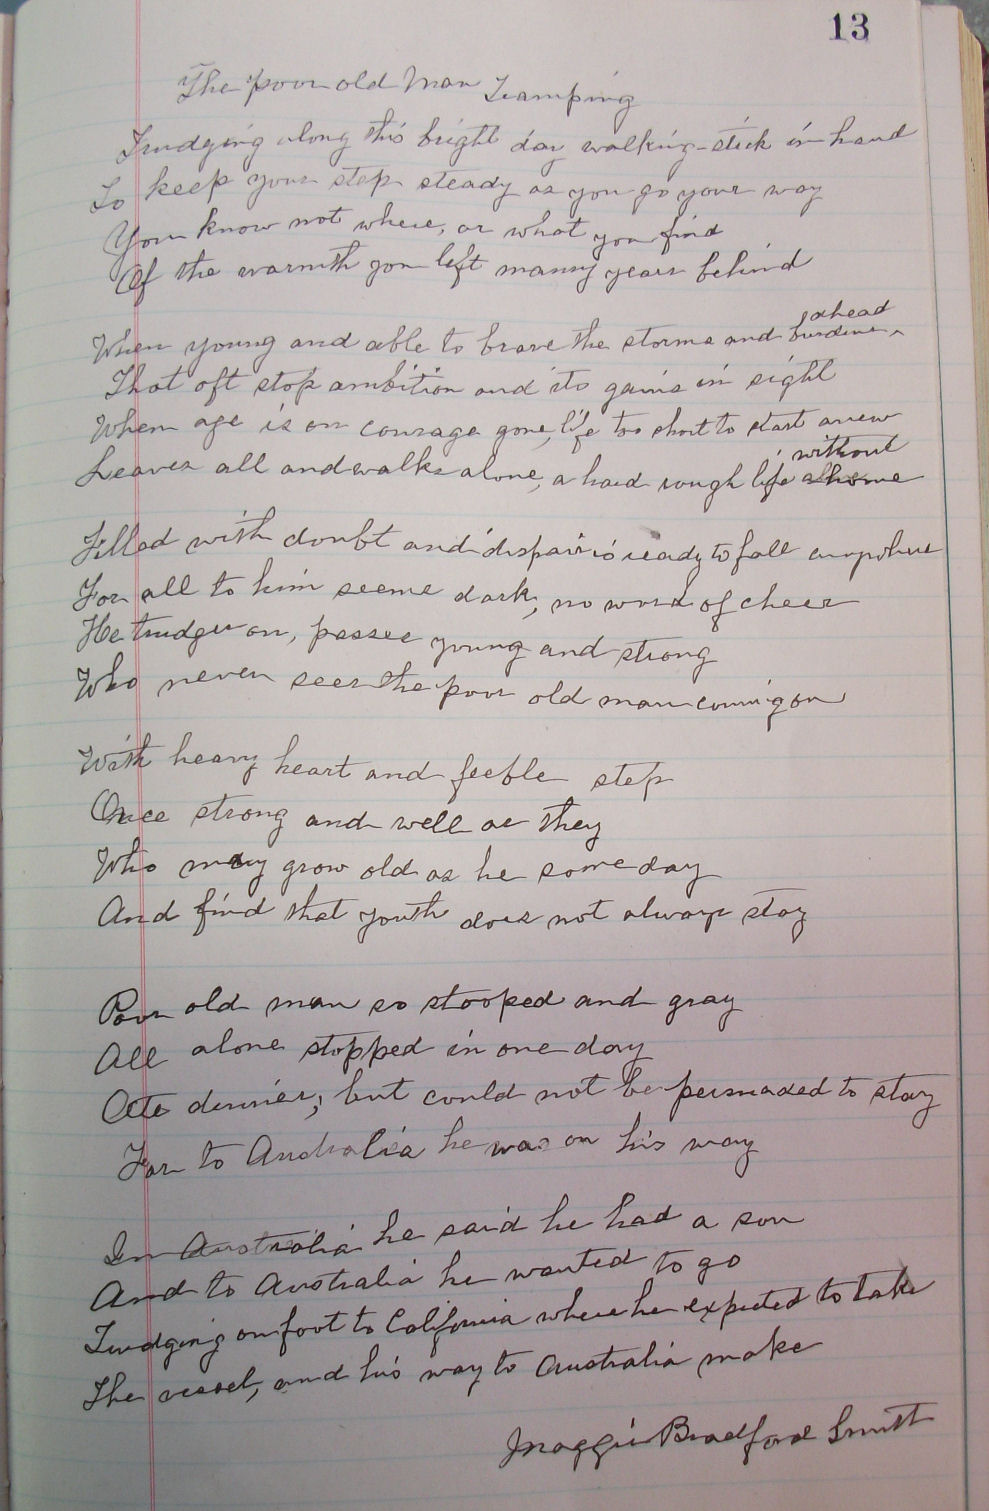 13
The poor old Man Tramping
Trudging along this bright day walking-stick in hand
To keep your step steady as you go your way
You know not where, or what you find
Of the warmth you left many years behind
When young and able to brave the storms and burdens ahead
That oft stop ambition and its gains in sight
When age is on courage gone, life too short to start anew
Leaves all and walks alone, a hard rough life without a home
Filled with doubt and despair is ready to fall anywhere
For all to him seems dark, no word of cheer
He trudges on, passes young and strong
Who never sees the poor old man coming on
With heavy heart and feeble step
Once strong and well as they
Who may grow old as he some day
And find that youth does not always stay
Poor old man so stooped and gray
All alone stopped in one day
Ate dinner, but could not be persuaded to stay
For to Australia he was on his way
In Australia he said he had a son
And to Australia he wanted to go
Trudging on foot to California where he expected to take
The vessel, and his way to Australia make
Maggie Bradford Smith